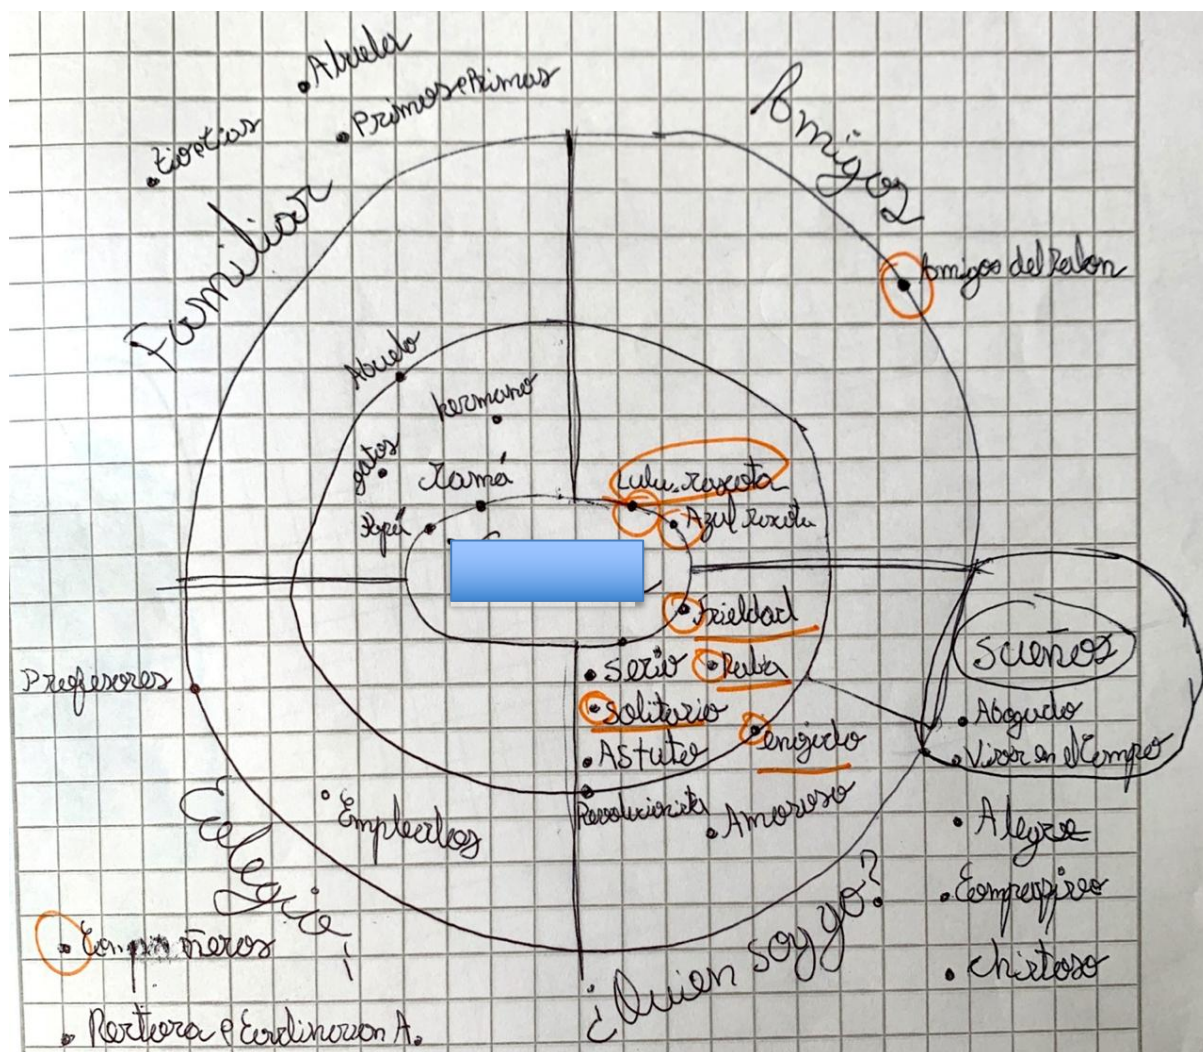 Abuela
Primos e Primas
tio e tias
Familiar
Amigos
Amigos del Salon
Abuelo
hermano
gatos
Mamá
Papá
Lulu mascota
Azul mascota
Frieldad
Serio
Rabia
Solitario
enojado
Astuto
Revolucionista
Amoroso
Sueños
Abogado
Vivir en el Campo
Alegre
Chistoso
Profesores
Empleados
Colegio
Compañeros
¿Quien soy yo?
Rectora e